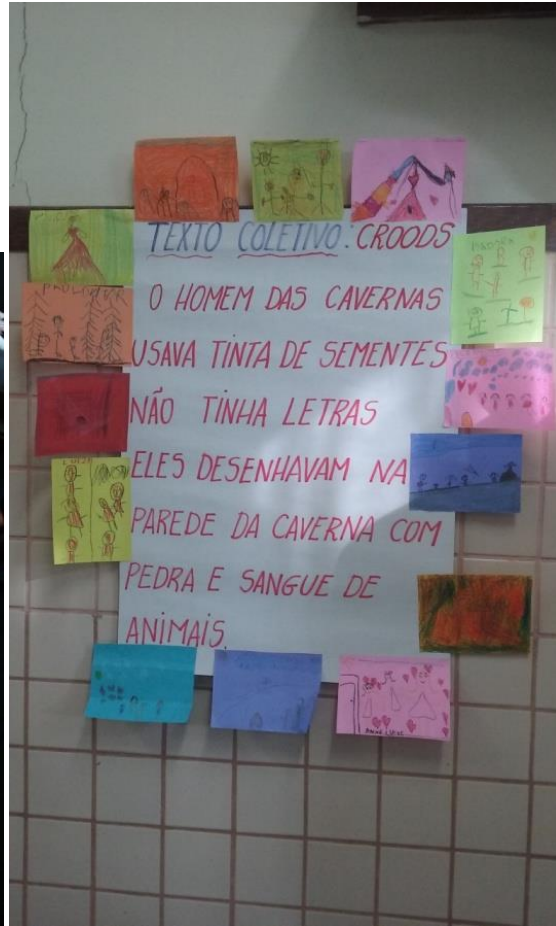 TEXTO COLETIVO: CROODS
O HOMEM DAS CAVERNAS
USAVA TINTA DE SEMENTES
NÃO TINHA LETRAS
ELES DESENHAVAM NA
PAREDE DA CAVERNA COM
PEDRA E SANGUE DE
ANIMAIS